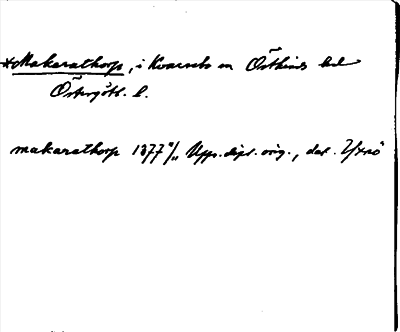 *Makarathorp, i Kvarsebo sn Östkinds hd
Östergötl. l.
makarathorp 1377 9/11 Upps. dipl. orig., dat. Yxnö